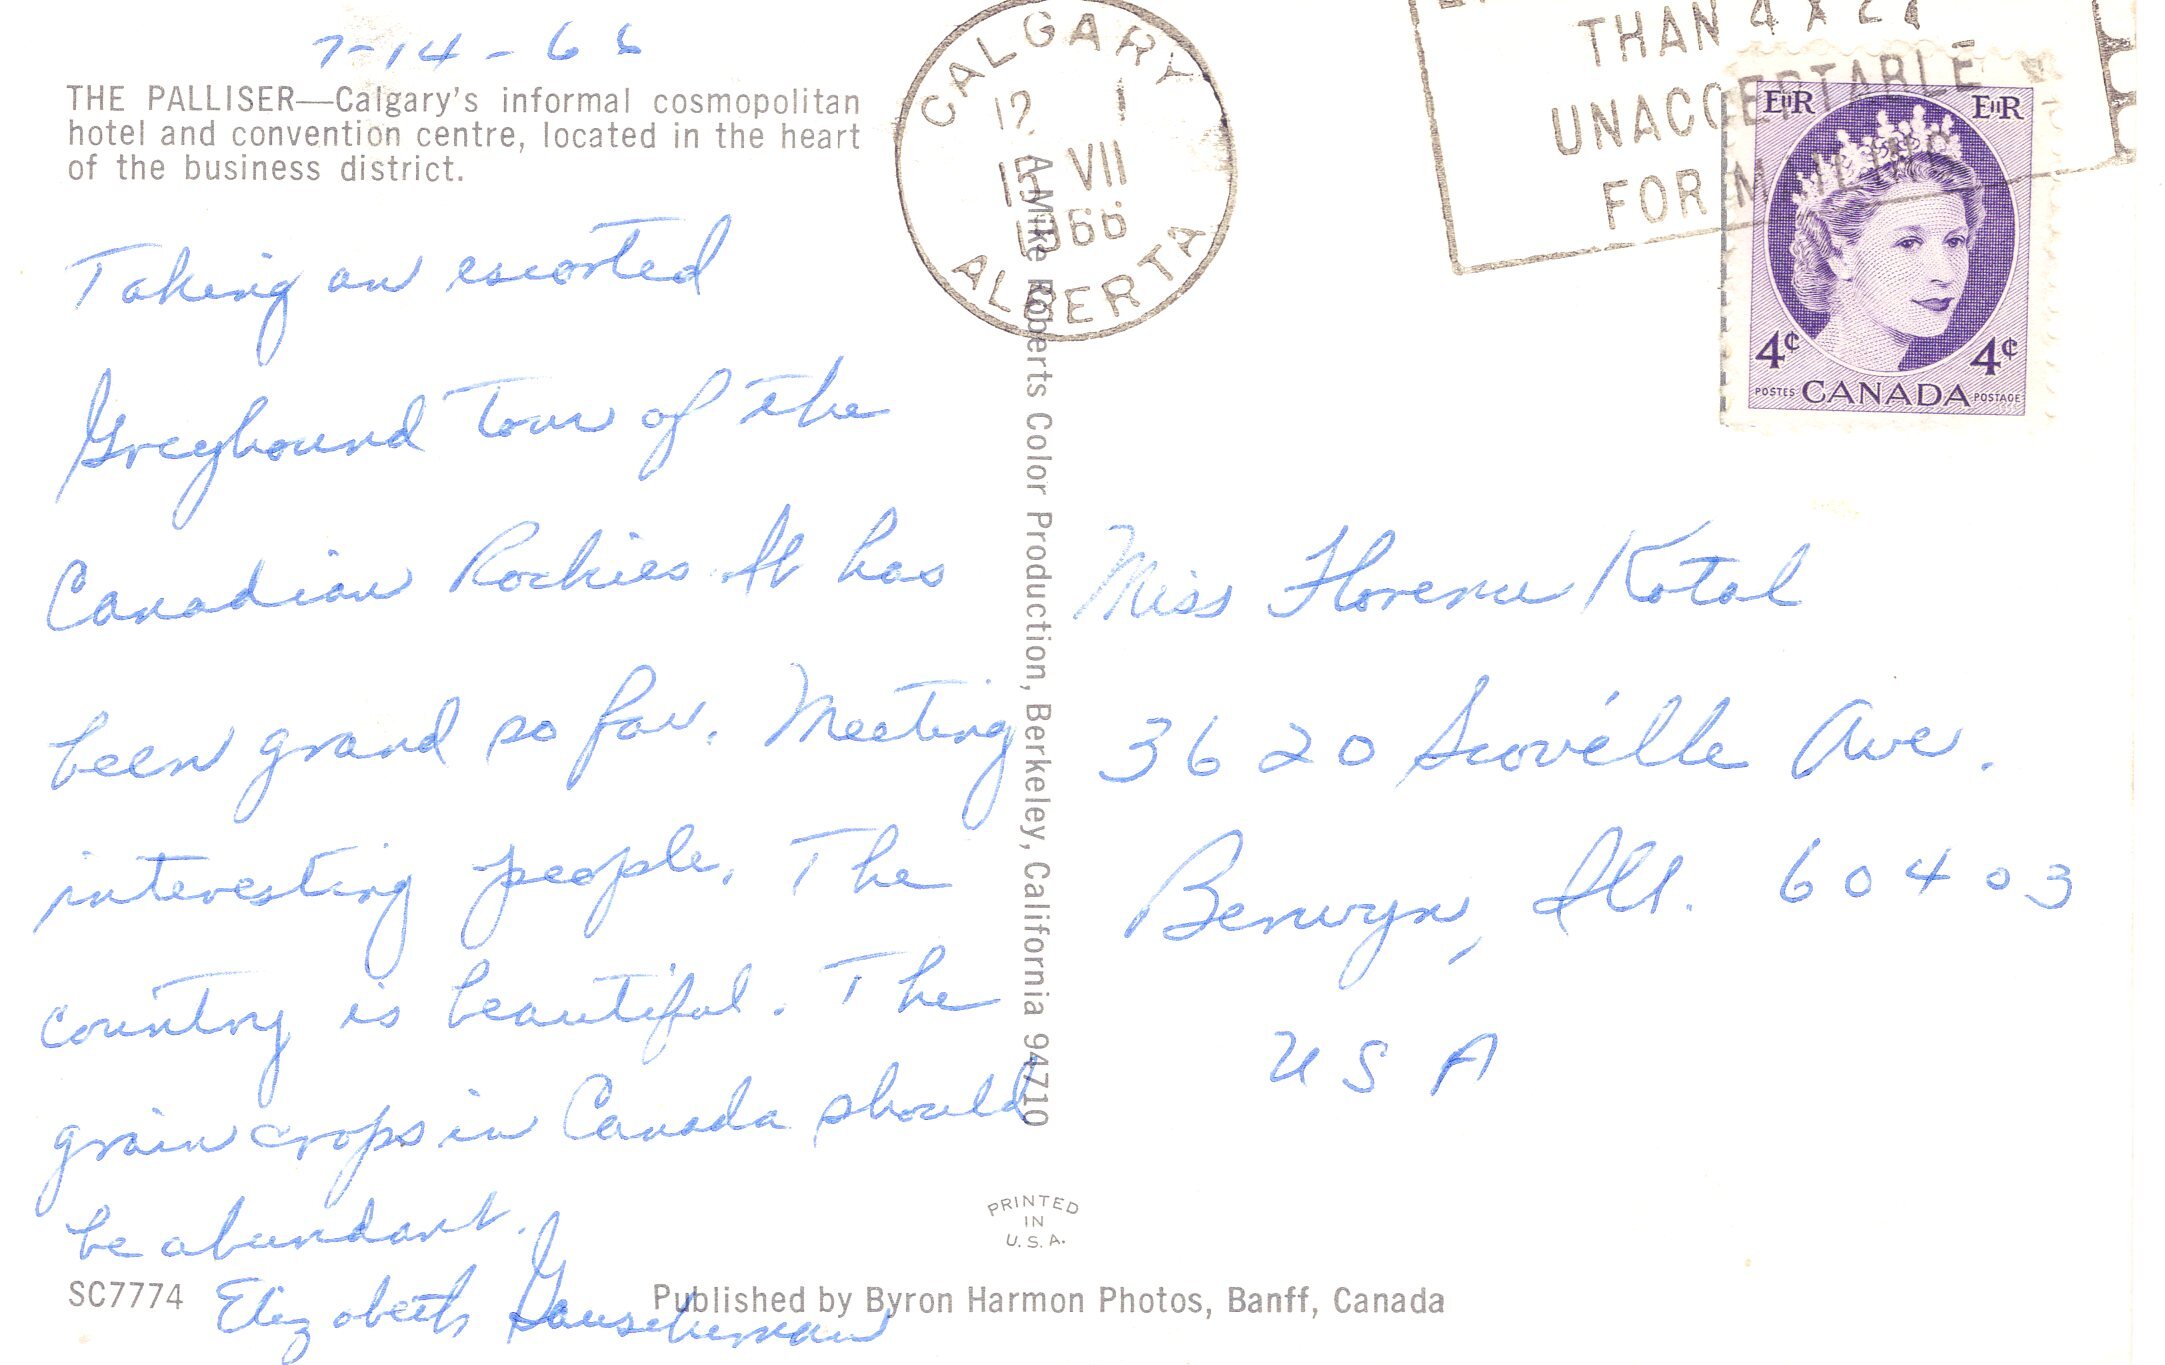 7-14-66
THE PALLISER—Calgary's informal cosmopolitan
hotel and convention centre, located in the heart
of the business district.
Taking an escorted
Greyhound tour of the
Canadian Rockies. It has
been grand so far. Meeting
interesting people. The
country is beautiful. The
grain crops in Canada should
be abundant.
Elizabeth
SC7774
Published by Byron Harmon Photos, Banff, Canada
PRINTED
IN
U.S.A.
A Mike Roberts Color Production, Berkeley, California 94710
CALGARY
12 1
15 VII
1966
ALBERTA
THAN 4 X 2
UNACCEPTABLE
FOR MAILING
EIIR EIIR
4¢ 4¢
POSTES CANADA POSTAGE
Miss Florence Kotal
3620 Scoville Ave.
Berwyn, Ill. 60403
USA